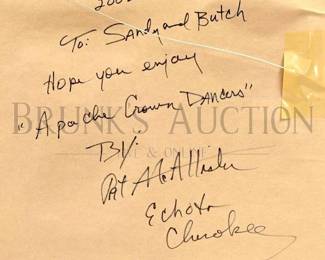 To: Sandy and Butch
Hope you enjoy
"Apache Crown Dancers"
BRUNK'S AUCTION
By:
& ONLINE
Pat McAllister
Echota
Cherokee